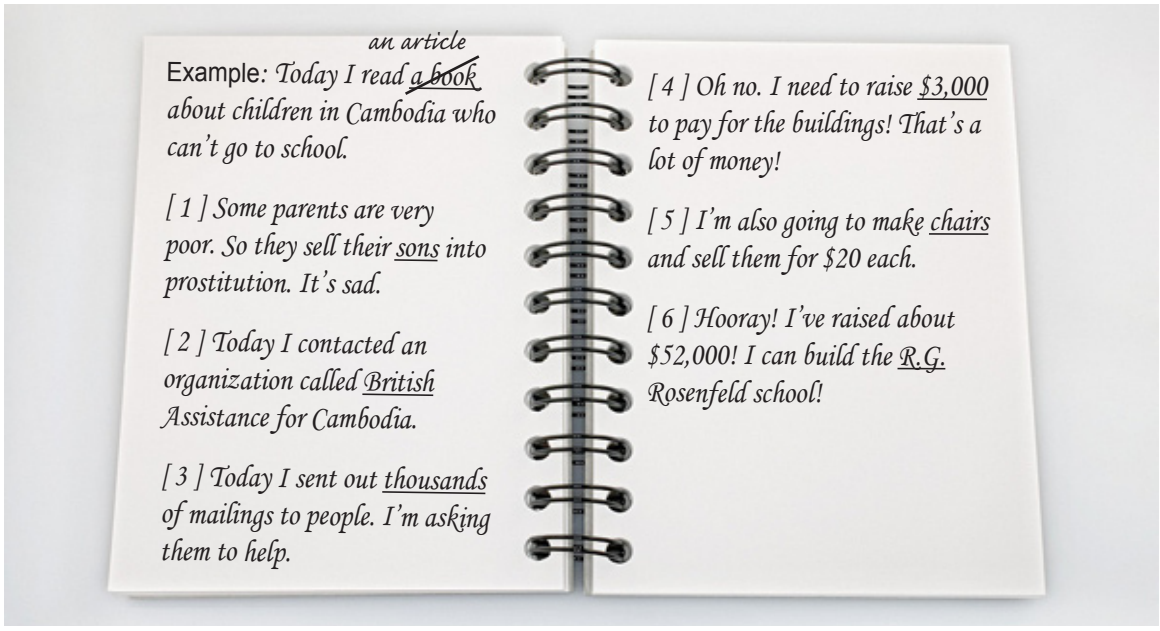 an article
Example: Today I read a book
about children in Cambodia who
can't go to school.
[ 1 ] Some parents are very
poor. So they sell their sons into
prostitution. It's sad.
[ 2 ] Today I contacted an
organization called British
Assistance for Cambodia.
[ 3 ] Today I sent out thousands
of mailings to people. I'm asking
them to help.
[ 4 ] Oh no. I need to raise $3,000
to pay for the buildings! That's a
lot of money!
[ 5 ] I'm also going to make chairs
and sell them for $20 each.
[ 6 ] Hooray! I've raised about
$52,000! I can build the R.G.
Rosenfeld school!